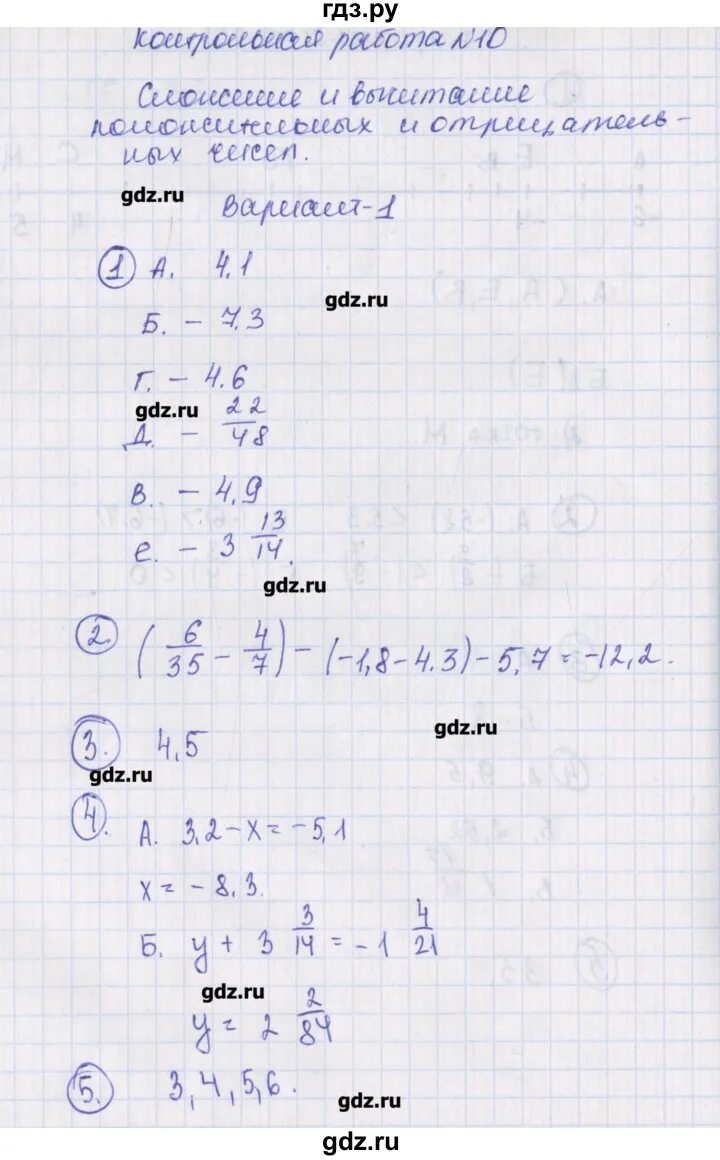 гдз.ру
Контрольная работа №10
Сложение и вычитание
положительных и отрицатель-
ных чисел.
gdz.ru
Вариант-1
① А. 4.1
gdz.ru
Б. - 7.3
Г. - 4.6
gdz.ru
Д. - 22/48
В. - 4,9
е. - 3 13/14.
gdz.ru
②. (6/35 - 4/7) - (-1,8 - 4.3) - 5,7 = -12,2.
gdz.ru
③. 4,5
gdz.ru
④. А. 3,2 - x = -5,1
x = - 8,3.
Б. y + 3 3/14 = -1 4/21
gdz.ru
y = 2 2/84
⑤. 3, 4, 5, 6.
gdz.ru
gdz.ru